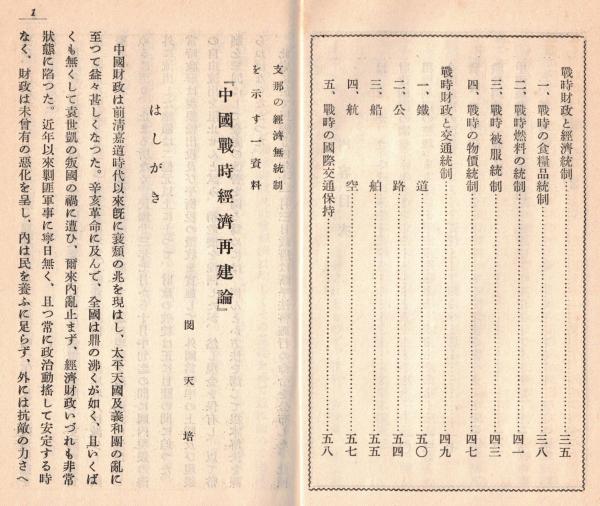 戰時財政と經濟統制……三五
一、戰時の食糧品統制……三八
二、戰時燃料の統制……四一
三、戰時被服統制……四三
四、戰時の物價統制……四七
戰時財政と交通統制……四九
一、鐵道……五〇
二、公路……五四
三、船舶……五五
四、航空……五七
五、戰時の國際交通保持……五八
支那の經濟無統制
を示す一資料
『中國戰時經濟再建論』
閔天培
はしがき
中國財政は前淸嘉道時代以來旣に衰頽の兆を現はし、太平天國及義和團の亂に
至つて益々甚しくなつた。辛亥革命に及んで、全國は鼎の沸くが如く、且いくば
くも無くして袁世凱の叛國の禍に遭ひ、爾來內亂止まず、經濟財政いづれも非常
狀態に陷つた。近年以來剿匪軍事に寧日無く、且つ常に政治動搖して安定する時
なく、財政は未曾有の惡化を呈し、內は民を養ふに足らず、外には抗敵の力さへ
1